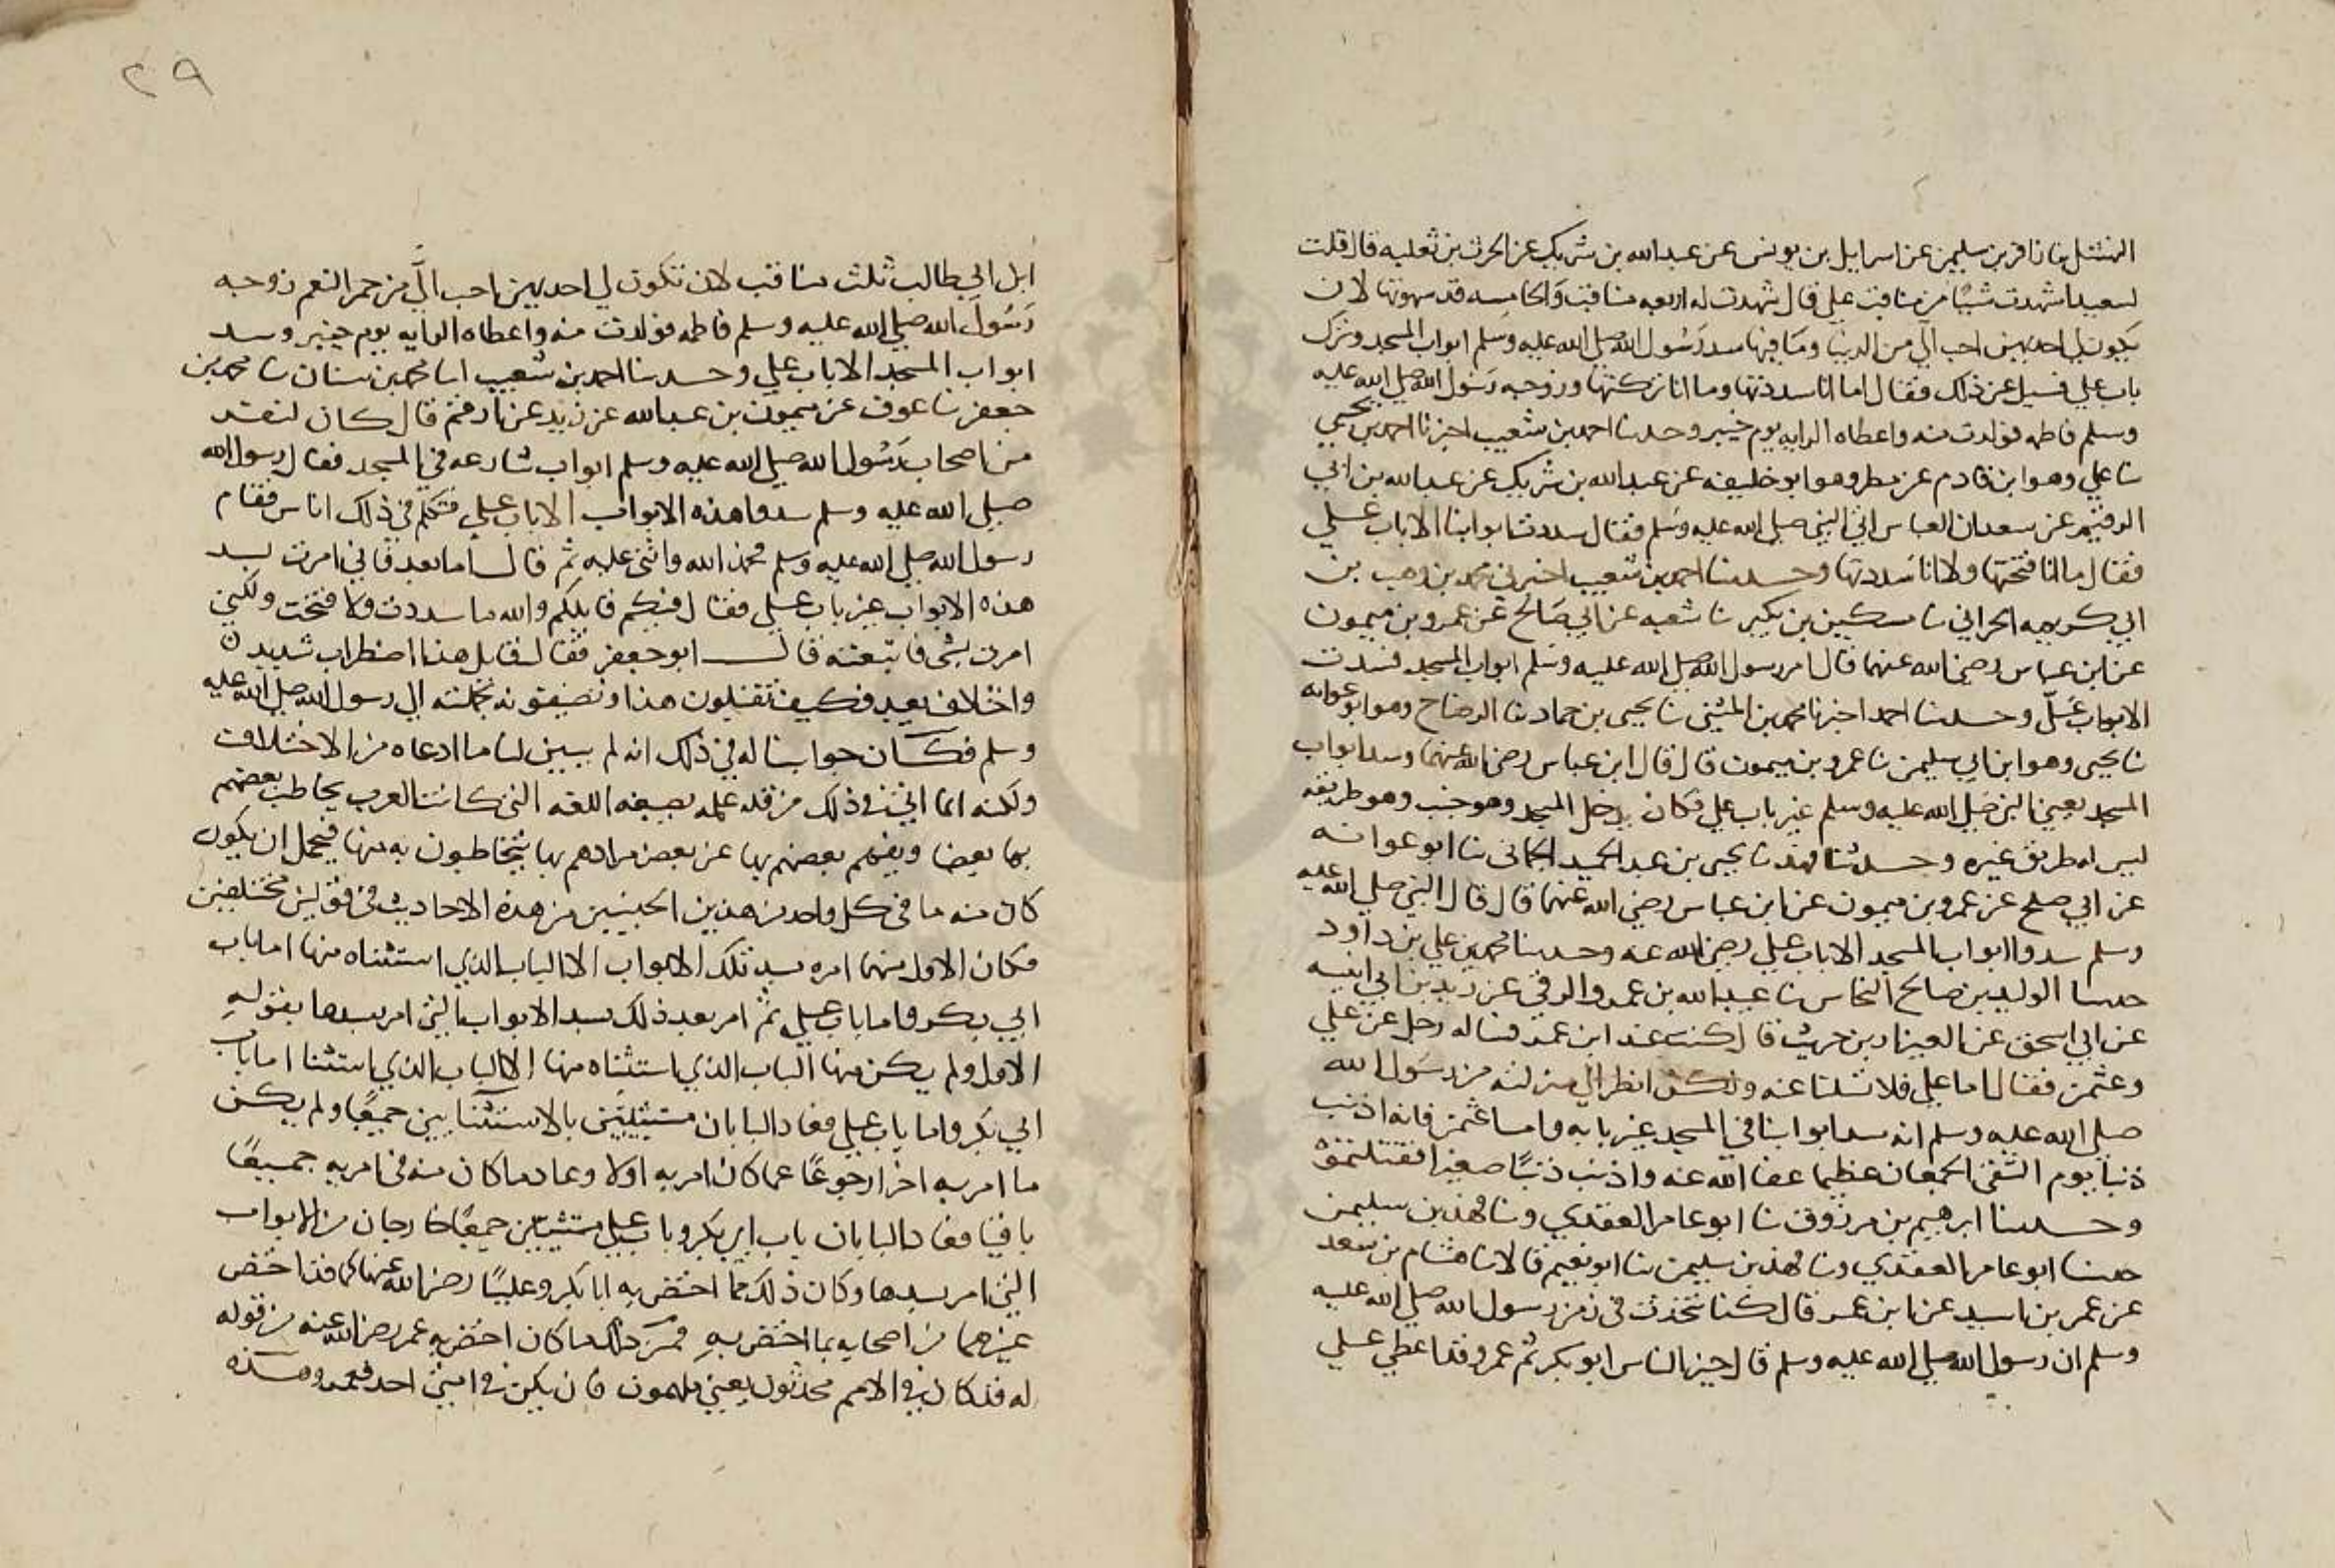 المنثنل بنا زافر بن سليمن عن اسرايل بن يونس عن عبدالله بن شريك عن الحرث بن ثعلبه قال قلت
لسعيد اشهدت شيا من مناقب علي قال شهدت له اربعه مناقب والخامسه قد سهوتها لان
يكون لي احديهن احب الي من الدنيا وما فيها سد رسول الله صلى الله عليه وسلم ابواب المسجد وترك
باب علي فسيل عن ذلك فقال اما انا سددتها وما انا تركتها وزوجه رسول الله صلى الله عليه
وسلم فاطمه فولدت منه واعطاه الرايه يوم خيبر وحدثنا احمد بن شعيب اخبرنا احمد بن يحيى
نا علي وهو ابن قادم عن مطر وهو ابو خليفه عن عبدالله بن شريك عن عبدالله بن ابي
الرقيم عن سعد ان العباس اتي النبي صلى الله عليه وسلم فقال سددت ابوابنا الا باب علي
فقال ما انا فتحتها ولا انا سددتها وحدثنا احمد بن شعيب اخبرني محمد بن وهب بن
ابي كريمه الحراني نا مسكين بن بكير نا شعبه عن ابي صالح عن عمرو بن ميمون
عن ابن عباس رضي الله عنهما قال امر رسول الله صلى الله عليه وسلم ابواب المسجد فسدت
الا باب علي وحدثنا احمد اخبرنا محمد بن المثنى نا يحيى بن حماد بنا الوضاح وهو ابو عوانه
نا يحيى وهو ابن ابي سليمن نا عمرو بن ميمون قال قال ابن عباس رضي الله عنهما وسد ابواب
المسجد يعني النبي صلى الله عليه وسلم غير باب علي فكان يدخل المسجد وهو جنب وهو طريقه
ليس له طريق غيره وحدثنا فهد نا يحيى بن عبد الحميد الحماني نا ابو عوانه
عن ابي صلح عن عمرو بن ميمون عن ابن عباس رضي الله عنهما قال قال النبي صلى الله عليه
وسلم سدوا ابواب المسجد الا باب علي رضي الله عنه وحدثنا محمد بن علي بن داود
حدثنا الوليد بن صالح النخاس نا عبيدالله بن عمرو الرقي عن زيد بن ابي انيسه
عن ابي اسحق عن العيزار بن حريث قال كنت عند ابن عمر فساله رجل عن علي
وعثمن فقال اما علي فلا تسلنا عنه ولكن انظر الي منزلته من رسول الله
صلى الله عليه وسلم انه سد ابوابنا في المسجد غير بابه واما عثمن فانه اذنب
ذنبا يوم التقى الجمعان عظيما عفا الله عنه واذنب ذنبا صغيرا فقتلتموه
وحدثنا ابرهيم بن مرزوق نا ابو عامر العقدي ونا فهد بن سليمن
حدثنا ابو عامر العقدي ونا فهد بن سليمن نا ابو نعيم قالا نا هشام بن سعد
عن عمر بن اسيد عن ابن عمر قال كنا نتحدث في زمن رسول الله صلى الله عليه
وسلم ان رسول الله صلى الله عليه وسلم قال خير الناس ابو بكر ثم عمر وقد اعطي علي
٢٩
ابن ابي طالب ثلث مناقب لان تكون لي احديهن احب الي من حمر النعم زوجه
رسول الله صلى الله عليه وسلم فاطمه فولدت منه واعطاه الرايه يوم خيبر وسد
ابواب المسجد الا باب علي وحدثنا احمد بن شعيب انا محمد بن بشار نا محمد بن
جعفر نا عوف عن ميمون بن عبدالله عن زيد عن ارقم قال كان لنفر
من اصحاب رسول الله صلى الله عليه وسلم ابواب شارعه في المسجد فقال رسول الله
صلى الله عليه وسلم سدوا هذه الابواب الا باب علي فتكلم في ذلك اناس فقام
رسول الله صلى الله عليه وسلم فحمد الله واثنى عليه ثم قال اما بعد فاني امرت بسد
هذه الابواب غير باب علي فقال فيكم قايلكم والله ما سددت ولا فتحت ولكني
امرت بشي فاتبعته قال ابو جعفر فقال قايل هذا اضطراب شديد
واختلاف بعيد فكيف تقبلون هذا وتضيفونه بحملته الي رسول الله صلى الله عليه
وسلم فكان جوابنا له في ذلك انه لم يبين لنا ما ادعاه من الاختلاف
ولكنه انما اتي في ذلك من قله علمه بصيغه اللغه التي كانت العرب يخاطب بعضهم
بها بعضا ويفهم بعضهم بها عن بعض مرادهم بها يتخاطبون به منها فيحمل ان يكون
كان منه ما في كل واحد من هذين الجنسين من هذه الاحاديث في قولين مختلفين
فكان الاول منهما امره بسد تلك الابواب الا الباب الذي استثناه منها اما باب
ابي بكر واما باب علي ثم امر بعد ذلك بسد الابواب التي امر بسدها بقوله
الاول ولم يكن منها الباب الذي استثناه منها الا الباب الذي استثنا اما باب
ابي بكر واما باب علي فعاد البابان مستثنيين بالاستثنايين جميعا ولم يكن
ما امر به اخرا رجوعا عما كان امر به اولا وعاد ما كان منه في امريه جميعا
باقيا فعاد البابان باب ابي بكر وباب علي مستثنيين جميعا خارجان من الابواب
التي امر بسدها وكان ذلك مما اختص به ابا بكر وعليا رضي الله عنهما كما قد اختص
غيرهما من اصحابه بما اختص به فمن ذلك ما كان اختص به عمر رضي الله عنه من قوله
له قد كان في الامم محدثون يعني ملهمون فان يكن في امتي احد فعمر وهذه